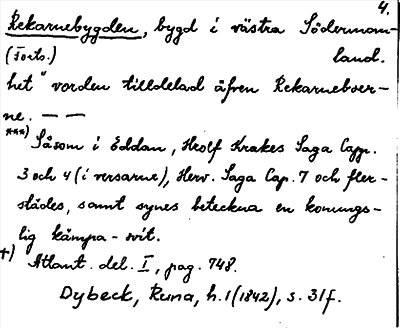 4.
Rekarnebygden, bygd i västra Söderman-
(Forts.) land.
het" vorden tilldelad äfven Rekarneboer-
ne. — —
***) Såsom i Eddan, Hrolf Krakes Saga Cap.
3 och 4 (i verserne), Herv. Saga Cap. 7 och fler-
städes, samt synes beteckna en konungs-
lig kämpa-svit.
+) Atlant. del. I, pag. 748.
Dybeck, Runa, h. 1 (1842), s. 31f.